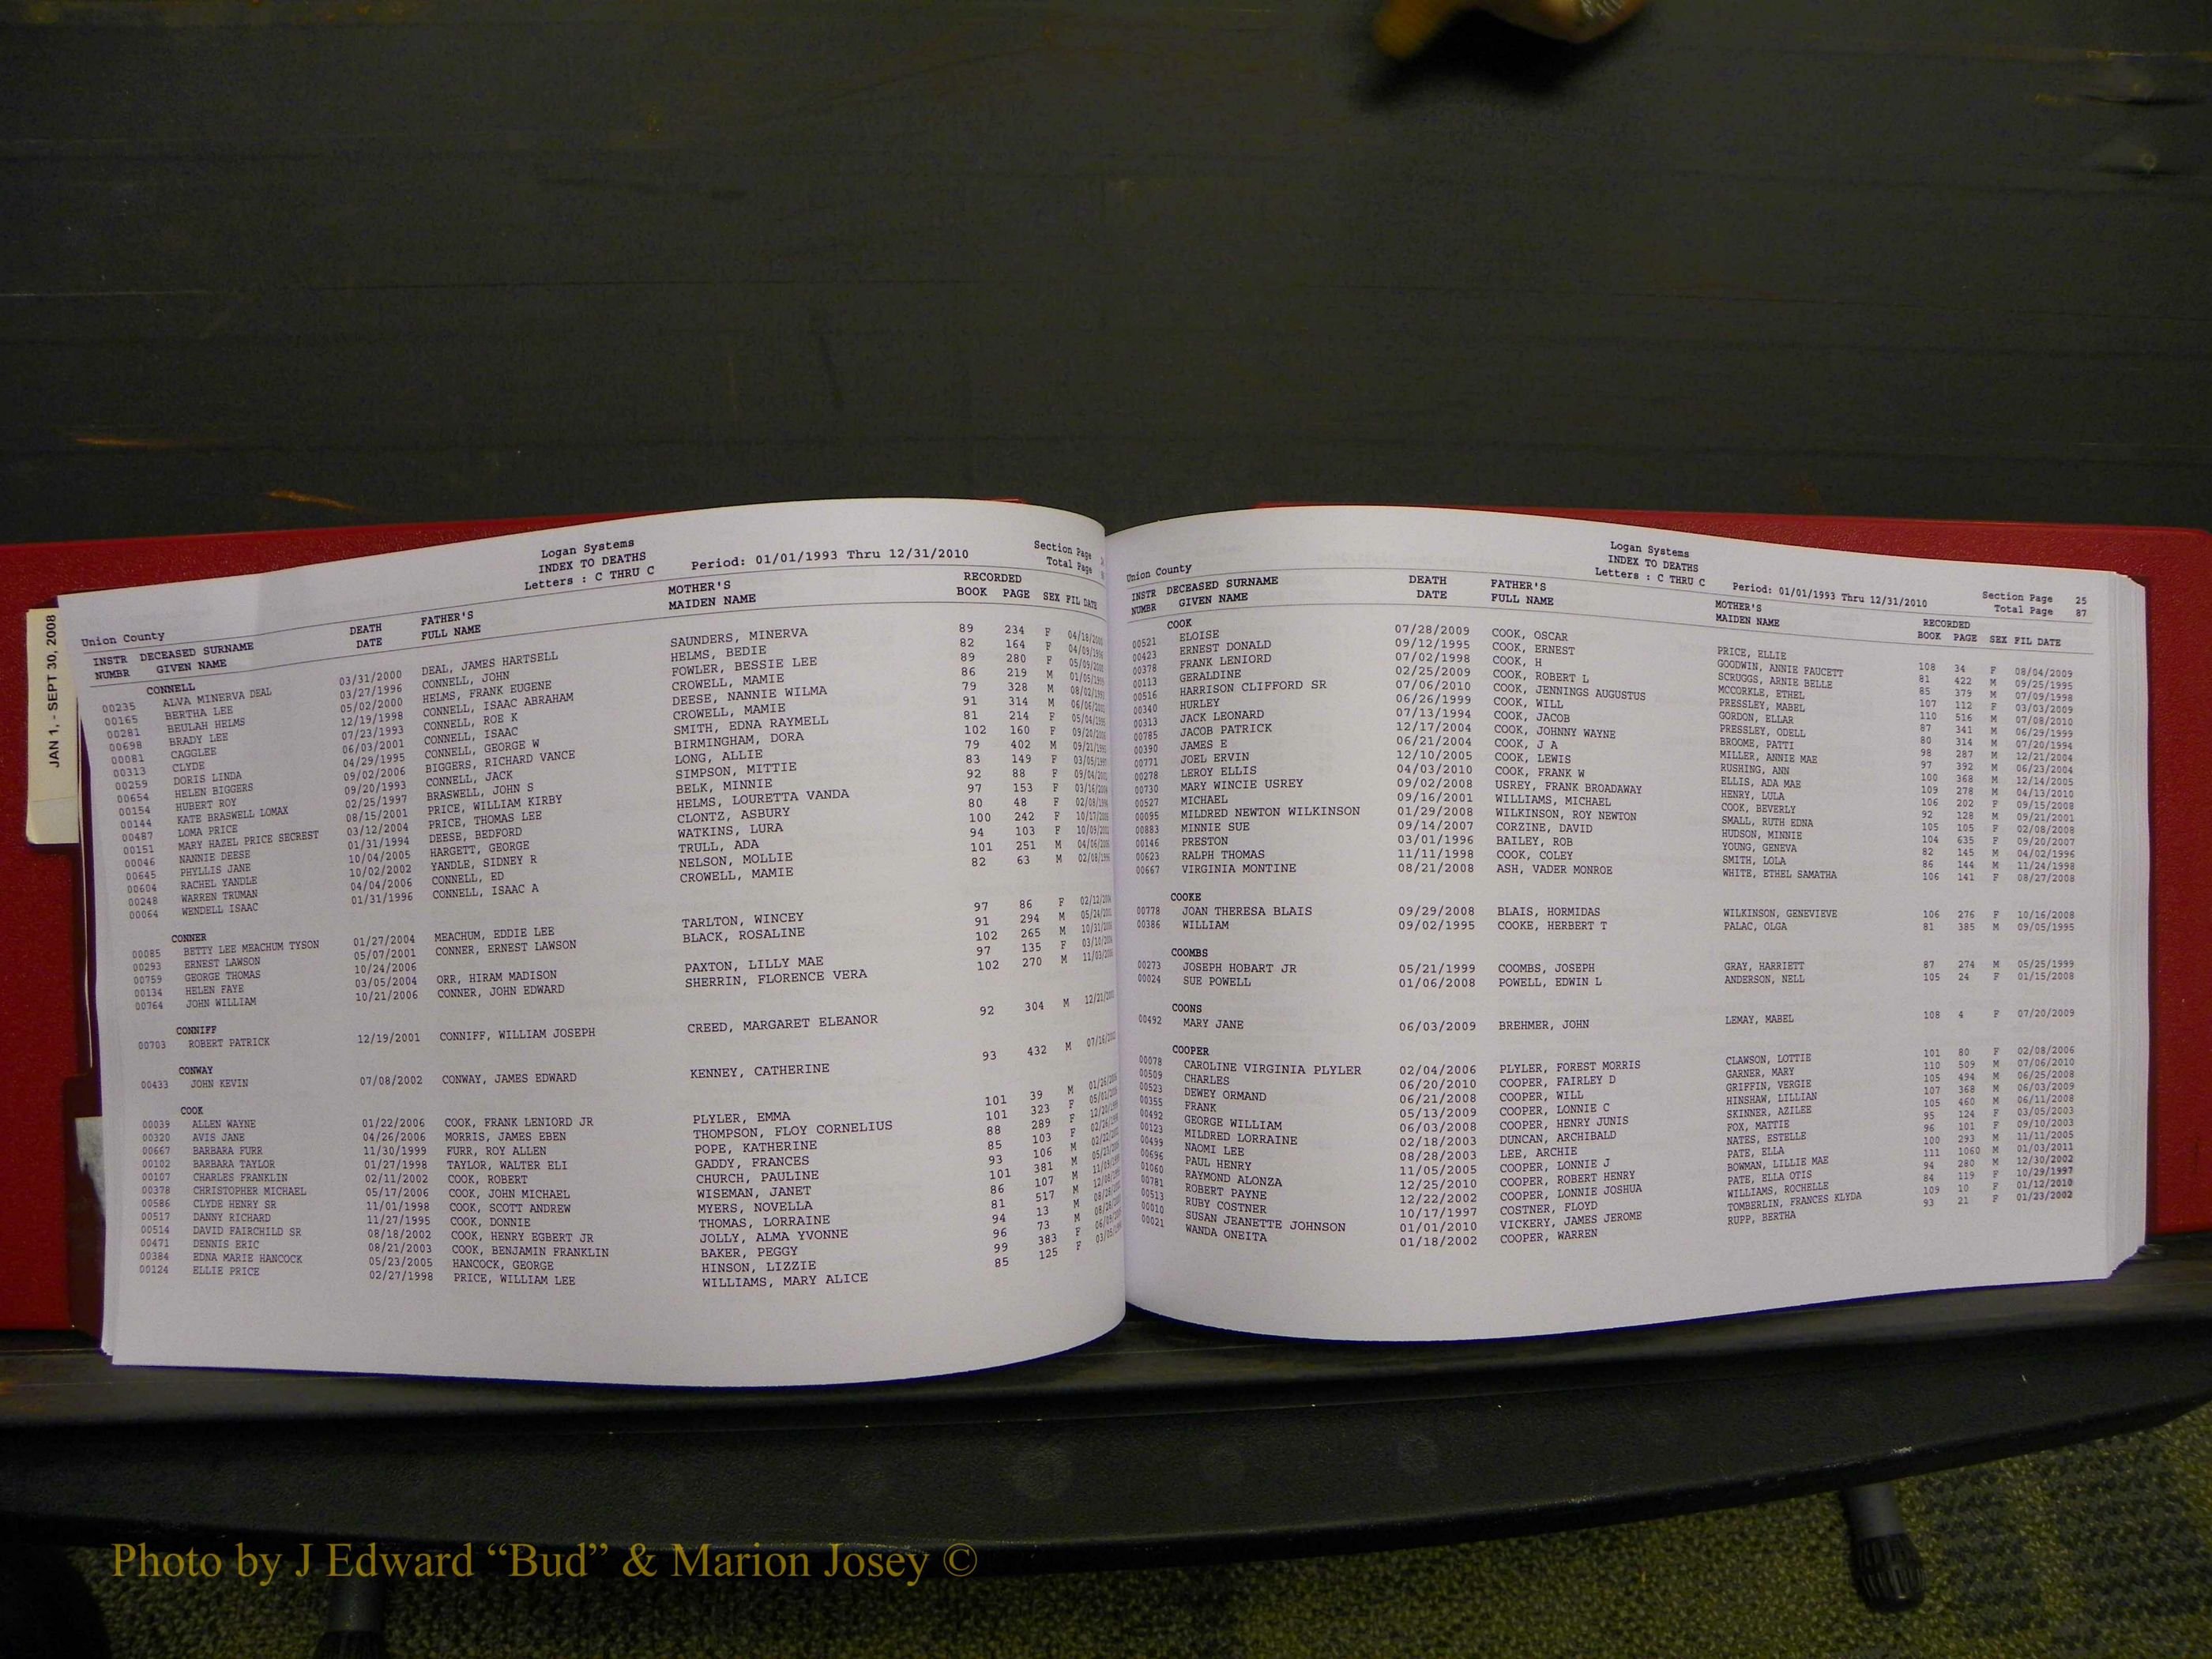 JAN 1, - SEPT 30, 2008
Logan Systems
INDEX TO DEATHS
Letters : C THRU C
Period: 01/01/1993 Thru 12/31/2010
Section Page
Total Page
Union County
INSTR DECEASED SURNAME DEATH FATHER'S MOTHER'S RECORDED
NUMBR GIVEN NAME DATE FULL NAME MAIDEN NAME BOOK PAGE SEX FIL DATE
CONNELL
00235 ALVA MINERVA DEAL 03/31/2000 DEAL, JAMES HARTSELL SAUNDERS, MINERVA 89 234 F
00165 BERTHA LEE 03/27/1996 CONNELL, JOHN HELMS, BEDIE 82 164 F
00281 BEULAH HELMS 05/02/2000 HELMS, FRANK EUGENE FOWLER, BESSIE LEE 89 280 F
00698 BRADY LEE 12/19/1998 CONNELL, ISAAC ABRAHAM CROWELL, MAMIE 86 219 M
00081 CAGGLEE 07/23/1993 CONNELL, ROE K DEESE, NANNIE WILMA 79 328 M
00313 CLYDE 06/03/2001 CONNELL, ISAAC CROWELL, MAMIE 91 314 M
00259 DORIS LINDA 04/29/1995 CONNELL, GEORGE W SMITH, EDNA RAYMELL 81 214 F
00654 HELEN BIGGERS 09/02/2006 BIGGERS, RICHARD VANCE BIRMINGHAM, DORA 102 160 F
00154 HUBERT ROY 09/20/1993 CONNELL, JACK LONG, ALLIE 79 402 M
00144 KATE BRASWELL LOMAX 02/25/1997 BRASWELL, JOHN S SIMPSON, MITTIE 83 149 F
00487 LOMA PRICE 08/15/2001 PRICE, WILLIAM KIRBY BELK, MINNIE 92 88 F
00151 MARY HAZEL PRICE SECREST 03/12/2004 PRICE, THOMAS LEE HELMS, LOURETTA VANDA 97 153 F
00046 NANNIE DEESE 01/31/1994 DEESE, BEDFORD CLONTZ, ASBURY 80 48 F
00645 PHYLLIS JANE 10/04/2005 HARGETT, GEORGE WATKINS, LURA 100 242 F
00604 RACHEL YANDLE 10/02/2002 YANDLE, SIDNEY R TRULL, ADA 94 103 F
00248 WARREN TRUMAN 04/04/2006 CONNELL, ED NELSON, MOLLIE 101 251 M
00064 WENDELL ISAAC 01/31/1996 CONNELL, ISAAC A CROWELL, MAMIE 82 63 M
CONNER
00085 BETTY LEE MEACHUM TYSON 01/27/2004 MEACHUM, EDDIE LEE TARLTON, WINCEY 97 86 F
00293 ERNEST LAWSON 05/07/2001 CONNER, ERNEST LAWSON BLACK, ROSALINE 91 294 M
00759 GEORGE THOMAS 10/24/2006 102 265 M
00134 HELEN FAYE 03/05/2004 ORR, HIRAM MADISON PAXTON, LILLY MAE 97 135 F
00764 JOHN WILLIAM 10/21/2006 CONNER, JOHN EDWARD SHERRIN, FLORENCE VERA 102 270 M
CONNIFF
00703 ROBERT PATRICK 12/19/2001 CONNIFF, WILLIAM JOSEPH CREED, MARGARET ELEANOR 92 304 M
CONWAY
00433 JOHN KEVIN 07/08/2002 CONWAY, JAMES EDWARD KENNEY, CATHERINE 93 432 M
COOK
00039 ALLEN WAYNE 01/22/2006 COOK, FRANK LENIORD JR PLYLER, EMMA 101 39 M
00320 AVIS JANE 04/26/2006 MORRIS, JAMES EBEN THOMPSON, FLOY CORNELIUS 101 323 F
00667 BARBARA FURR 11/30/1999 FURR, ROY ALLEN POPE, KATHERINE 88 289 F
00102 BARBARA TAYLOR 01/27/1998 TAYLOR, WALTER ELI GADDY, FRANCES 85 103 F
00107 CHARLES FRANKLIN 02/11/2002 COOK, ROBERT CHURCH, PAULINE 93 106 M
00378 CHRISTOPHER MICHAEL 05/17/2006 COOK, JOHN MICHAEL WISEMAN, JANET 101 381 M
00586 CLYDE HENRY SR 11/01/1998 COOK, SCOTT ANDREW MYERS, NOVELLA 86 107 M
00517 DANNY RICHARD 11/27/1995 COOK, DONNIE THOMAS, LORRAINE 81 517 M
00514 DAVID FAIRCHILD SR 08/18/2002 COOK, HENRY EGBERT JR JOLLY, ALMA YVONNE 94 13 M
00471 DENNIS ERIC 08/21/2003 COOK, BENJAMIN FRANKLIN BAKER, PEGGY 96 73 M
00384 EDNA MARIE HANCOCK 05/23/2005 HANCOCK, GEORGE HINSON, LIZZIE 99 383 F
00124 ELLIE PRICE 02/27/1998 PRICE, WILLIAM LEE WILLIAMS, MARY ALICE 85 125 F
Logan Systems
INDEX TO DEATHS
Letters : C THRU C
Period: 01/01/1993 Thru 12/31/2010
Section Page 25
Total Page 87
Union County
INSTR DECEASED SURNAME DEATH FATHER'S MOTHER'S RECORDED
NUMBR GIVEN NAME DATE FULL NAME MAIDEN NAME BOOK PAGE SEX FIL DATE
COOK
00521 ELOISE 07/28/2009 COOK, OSCAR PRICE, ELLIE 108 34 F 08/04/2009
00423 ERNEST DONALD 09/12/1995 COOK, ERNEST GOODWIN, ANNIE FAUCETT 81 422 M 09/25/1995
00378 FRANK LENIORD 07/02/1998 COOK, H SCRUGGS, ARNIE BELLE 85 379 M 07/09/1998
00113 GERALDINE 02/25/2009 COOK, ROBERT L MCCORKLE, ETHEL 107 112 F 03/03/2009
00516 HARRISON CLIFFORD SR 07/06/2010 COOK, JENNINGS AUGUSTUS PRESSLEY, MABEL 110 516 M 07/08/2010
00340 HURLEY 06/26/1999 COOK, WILL GORDON, ELLAR 87 341 M 06/29/1999
00313 JACK LEONARD 07/13/1994 COOK, JACOB PRESSLEY, ODELL 80 314 M 07/20/1994
00785 JACOB PATRICK 12/17/2004 COOK, JOHNNY WAYNE BROOME, PATTI 98 287 M 12/21/2004
00390 JAMES E 06/21/2004 COOK, J A MILLER, ANNIE MAE 97 392 M 06/23/2004
00771 JOEL ERVIN 12/10/2005 COOK, LEWIS RUSHING, ANN 100 368 M 12/14/2005
00278 LEROY ELLIS 04/03/2010 COOK, FRANK W ELLIS, ADA MAE 109 278 M 04/13/2010
00730 MARY WINCIE USREY 09/02/2008 USREY, FRANK BROADAWAY HENRY, LULA 106 202 F 09/15/2008
00527 MICHAEL 09/16/2001 WILLIAMS, MICHAEL COOK, BEVERLY 92 128 M 09/21/2001
00095 MILDRED NEWTON WILKINSON 01/29/2008 WILKINSON, ROY NEWTON SMALL, RUTH EDNA 105 105 F 02/08/2008
00883 MINNIE SUE 09/14/2007 CORZINE, DAVID HUDSON, MINNIE 104 635 F 09/20/2007
00146 PRESTON 03/01/1996 BAILEY, ROB YOUNG, GENEVA 82 145 M 04/02/1996
00623 RALPH THOMAS 11/11/1998 COOK, COLEY SMITH, LOLA 86 144 M 11/24/1998
00667 VIRGINIA MONTINE 08/21/2008 ASH, VADER MONROE WHITE, ETHEL SAMATHA 106 141 F 08/27/2008
COOKE
00778 JOAN THERESA BLAIS 09/29/2008 BLAIS, HORMIDAS WILKINSON, GENEVIEVE 106 276 F 10/16/2008
00386 WILLIAM 09/02/1995 COOKE, HERBERT T PALAC, OLGA 81 385 M 09/05/1995
COOMBS
00273 JOSEPH HOBART JR 05/21/1999 COOMBS, JOSEPH GRAY, HARRIETT 87 274 M 05/25/1999
00024 SUE POWELL 01/06/2008 POWELL, EDWIN L ANDERSON, NELL 105 24 F 01/15/2008
COONS
00492 MARY JANE 06/03/2009 BREHMER, JOHN LEMAY, MABEL 108 4 F 07/20/2009
COOPER
00078 CAROLINE VIRGINIA PLYLER 02/04/2006 PLYLER, FOREST MORRIS CLAWSON, LOTTIE 101 80 F 02/08/2006
00509 CHARLES 06/20/2010 COOPER, FAIRLEY D GARNER, MARY 110 509 M 07/06/2010
00523 DEWEY ORMAND 06/21/2008 COOPER, WILL GRIFFIN, VERGIE 105 494 M 06/25/2008
00355 FRANK 05/13/2009 COOPER, LONNIE C HINSHAW, LILLIAN 107 368 M 06/03/2009
00492 GEORGE WILLIAM 06/03/2008 COOPER, HENRY JUNIS SKINNER, AZILEE 105 460 M 06/11/2008
00123 MILDRED LORRAINE 02/18/2003 DUNCAN, ARCHIBALD FOX, MATTIE 95 124 F 03/05/2003
00499 NAOMI LEE 08/28/2003 LEE, ARCHIE NATES, ESTELLE 96 101 F 09/10/2003
00696 PAUL HENRY 11/05/2005 COOPER, LONNIE J PATE, ELLA 100 293 M 11/11/2005
01060 RAYMOND ALONZA 12/25/2010 COOPER, ROBERT HENRY BOWMAN, LILLIE MAE 111 1060 M 01/03/2011
00781 ROBERT PAYNE 12/22/2002 COOPER, LONNIE JOSHUA PATE, ELLA OTIS 94 280 M 12/30/2002
00513 RUBY COSTNER 10/17/1997 COSTNER, FLOYD WILLIAMS, ROCHELLE 84 119 F 10/29/1997
00010 SUSAN JEANETTE JOHNSON 01/01/2010 VICKERY, JAMES JEROME TOMBERLIN, FRANCES KLYDA 109 10 F 01/12/2010
00021 WANDA ONEITA 01/18/2002 COOPER, WARREN RUPP, BERTHA 93 21 F 01/23/2002
Photo by J Edward “Bud” & Marion Josey ©